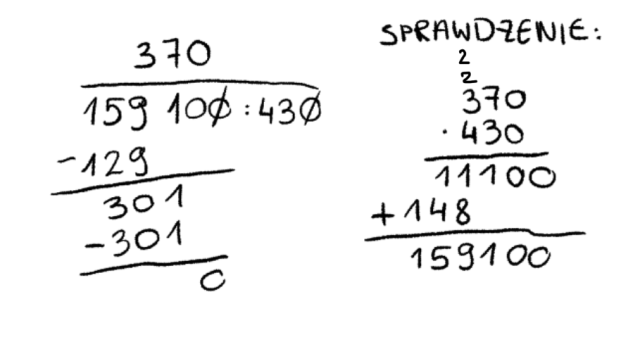 370
159 100 : 430
-129
301
-301
0
SPRAWDZENIE:
2
2
370
· 430
11100
+148
159100